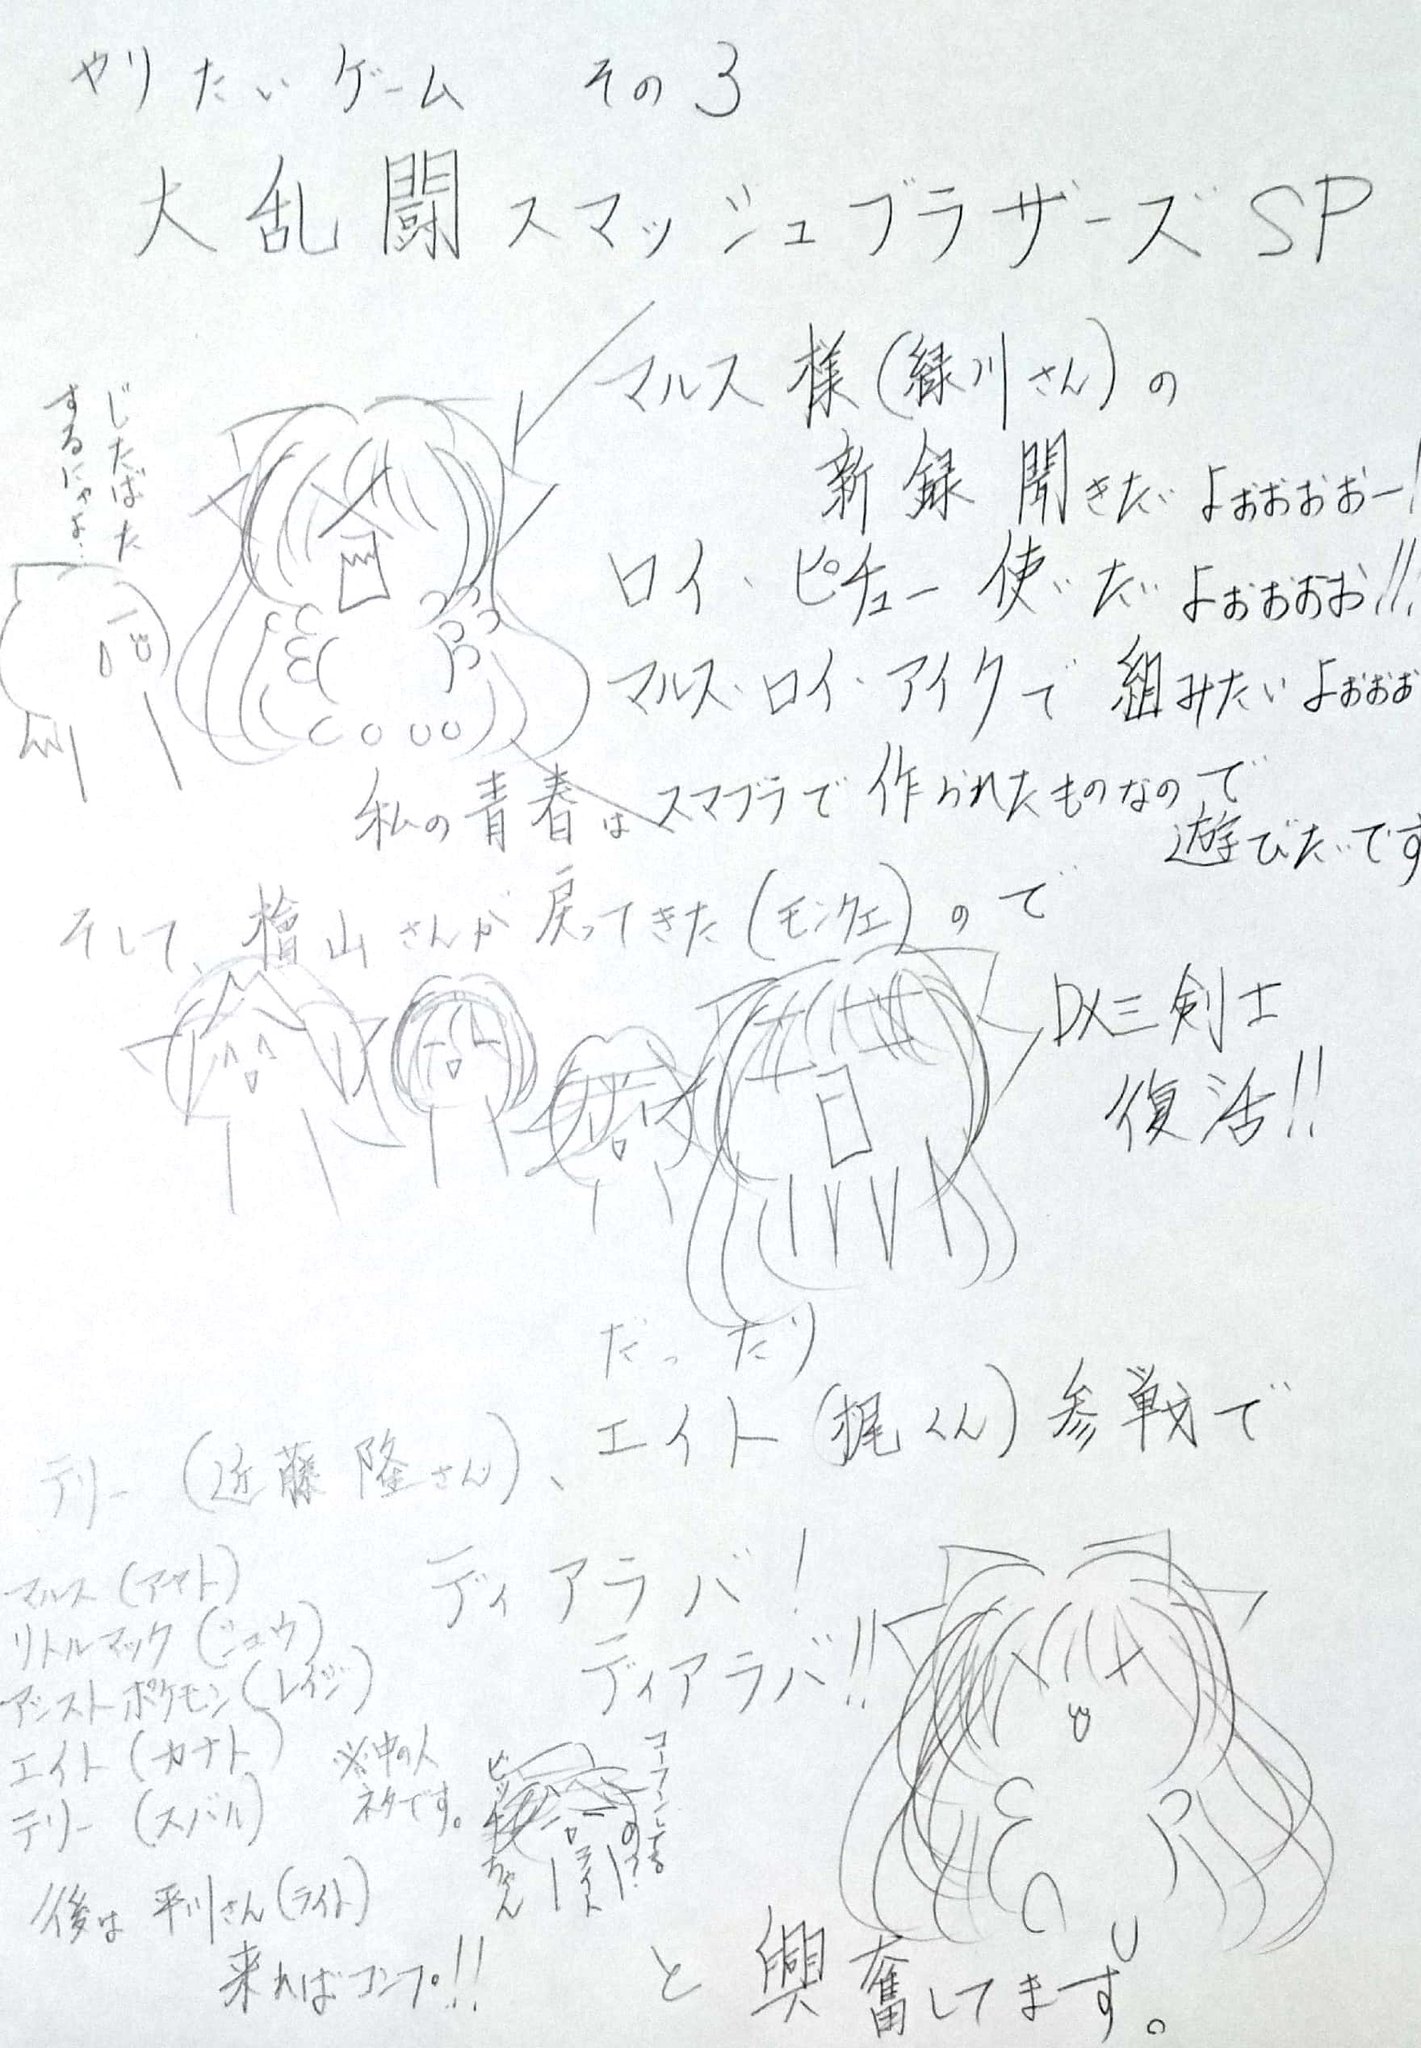 やりたいゲーム その3
大乱闘スマッシュブラザーズSP
マルス様(緑川さん)の
新録聞きたいよぉおおおー!
ロイ・ピチュー使いたいよぉおおお!!!
マルス・ロイ・アイクで組みたいよぉぉぉ
じたばた
するにゃよ…
私の青春はスマブラで作られたものなので
遊びたいです
そして、檜山さんが戻ってきた(モンクエ)ので
DX三剣士
復活!!
だったり
テリー(近藤隆さん)、エイト(梶くん)参戦で
ディアラバ!
ディアラバ!!
マルス(アヤト)
リトルマック(シュウ)
アシストポケモン(レイジ)
エイト(カナト)
テリー(スバル)
※中の人
ネタです。
後は平川さん(ライト)
来ればコンプ!!
コーフンしてる
の?
ライト
ビッチちゃん
と興奮してます。